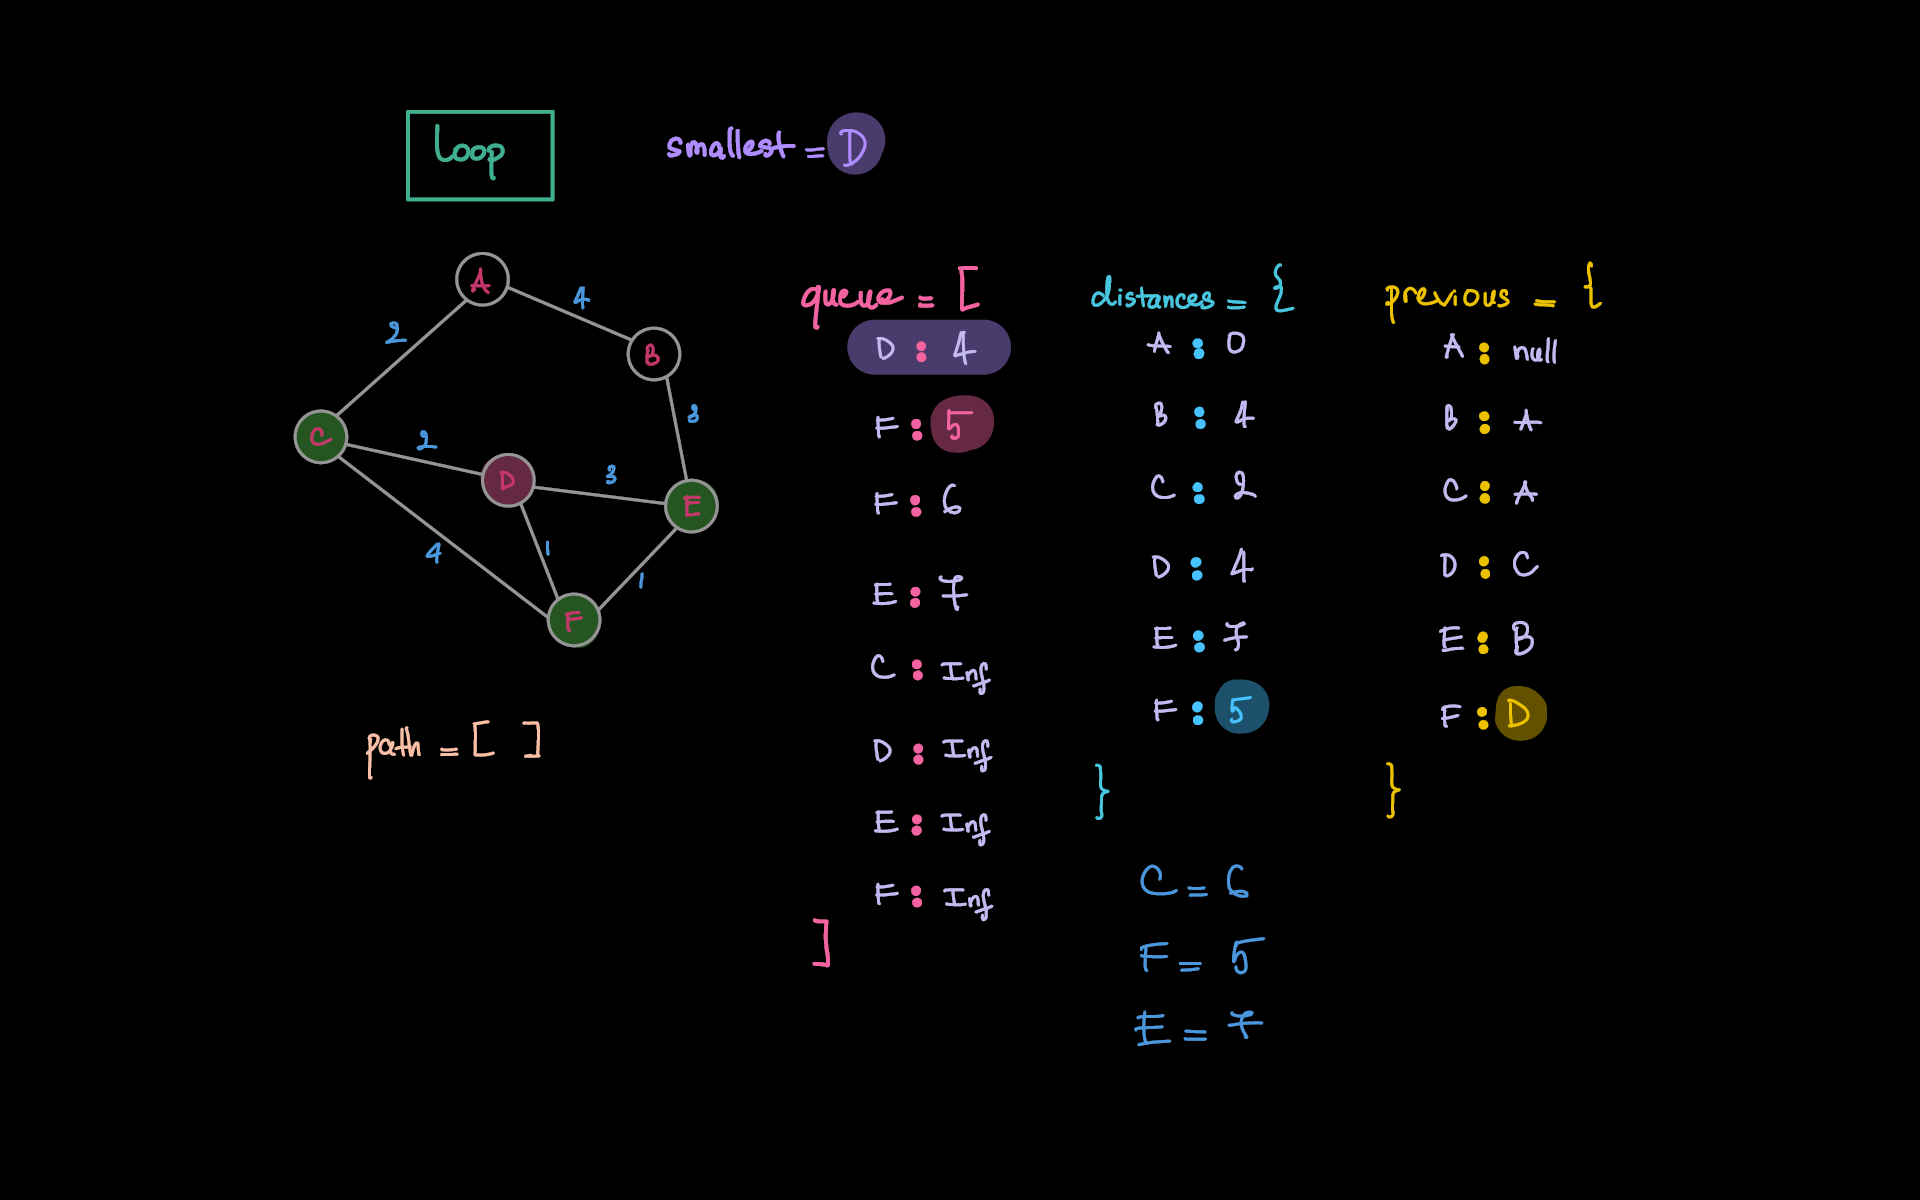 Loop
smallest = D
A
4
2
B
3
C
2
D
3
E
4
1
1
F
path = [ ]
queue = [
D : 4
F : 5
F : 6
E : 7
C : Inf
D : Inf
E : Inf
F : Inf
]
distances = {
A : 0
B : 4
C : 2
D : 4
E : 7
F : 5
}
C = 6
F = 5
E = 7
previous = {
A : null
B : A
C : A
D : C
E : B
F : D
}